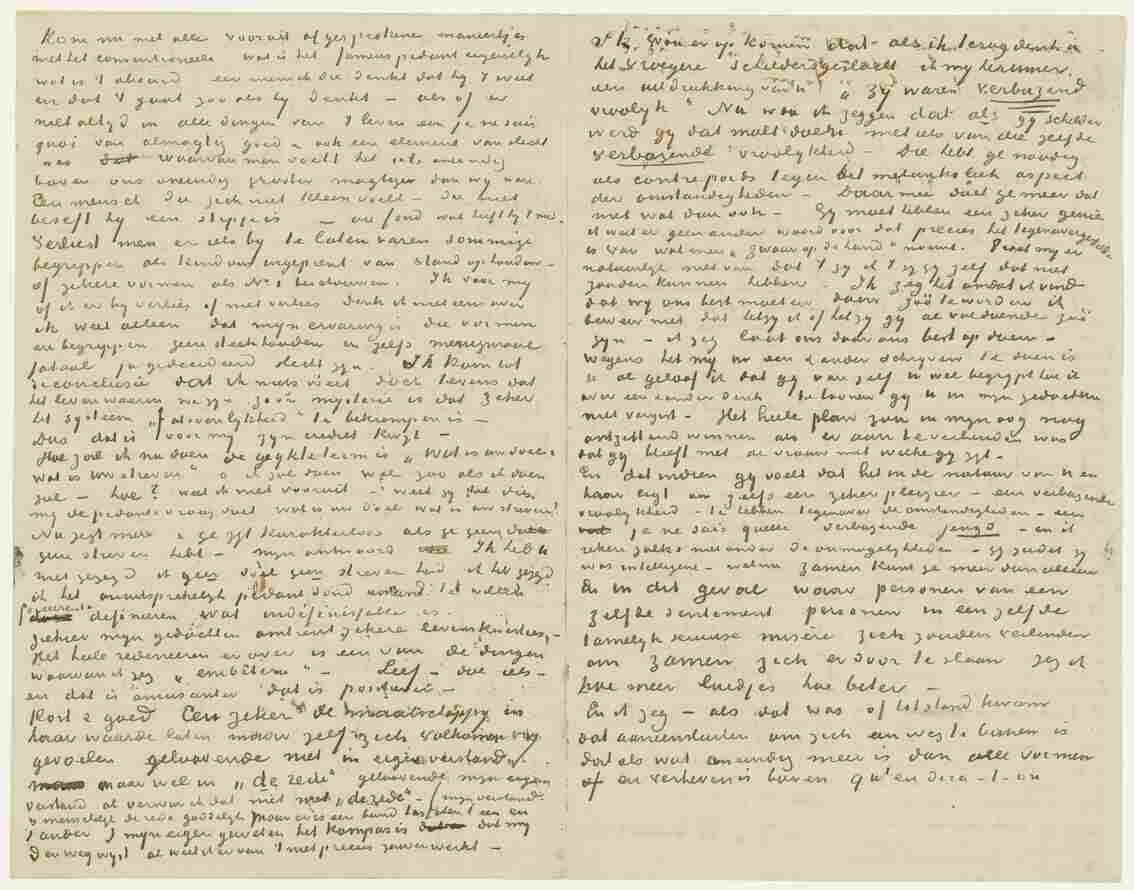 Kom nu met alle vooruit afgesprokene maniertjes
met het conventioneele wat is het fameus pedant eigenlijk
wat is 't absurd een mensch die denkt dat hij 't weet
en dat 't gaat zooals hij denkt — als of er
niet altijd in alle dingen van 't leven een je ne sais
quoi van almagtig goed & ook een element van slecht
was waarvan men voelt het iets oneindig
boven ons oneindig grooter magtiger dan wij ware.
Een mensch die zich niet kleen voelt — die niet
beseft hij een stipje is — au fond wat heeft hij 't mis.
Verliest men er iets bij te laten varen sommige
begrippen als kind ons ingeprent van stand ophouden —
of zekere vormen als No 1 beschouwen. Ik voor mij
of ik er bij verlies of niet verlies denk ik niet eens over
ik weet alleen dat mijn ervaring is die vormen
en begrippen geen steek houden en zelfs menigmaal
fataal ja gedecideerd slecht zijn. Ik kom tot
de conclusie dat ik niets weet doch tevens dat
het leven waarin we zijn zoo'n mysterie is dat zeker
het systeem „fatsoenlijkheid" te bekrompen is —
Dus dat is voor mij zijn crediet kwijt —
Hoe zal ik nu doen de geijkte term is „wat is uw doel
wat is uw streven" o ik zal doen wel zoo als ik doen
zal — hoe? weet ik niet vooruit — weet gij die
mij de pedante vraag doet wat is uw doel wat is uw streven?
Nu zegt men u ge zijt karakterloos als ge geen doel
geen streven hebt — mijn antwoord Ik heb u
niet gezegd ik geen doel geen streven had ik heb gezegd
ik het onuitsprekelijk pedant vond iemand te willen
forceeren te definieeren wat indéfinissable is.
Ziehier mijn gedachten omtrent zekere levenskwesties —
Het heele redeneeren er over is een van de dingen
waarvan ik zeg „embêteren" — Leef — doe iets —
en dat is amusanter dat is positiever —
Kort & goed Een zeker de maatschappij in
haar waarde laten maar zelf zich volkomen vrij
gevoelen geloovende niet in eigen verstand
maar wel in „de rede" geloovende mijn eigen
verstand al verwar ik dat niet met „de rede" — (mijn verstand
is menschelijk de rede goddelijk maar er is een band tusschen 't een en
't ander) mijn eigen geweten het kompas is dat mij
den weg wijst al weet ik er van 't niet precies zuiver werkt —
Ik zou er op komen dat als ik terug denk aan
het vroegere schildersgeslacht ik mij herinner
een uitdrukking van u „zij waren verbazend
vroolijk". Nu wou ik zeggen dat als gij schilder
werd gij dat moest doen met iets van die zelfde
verbazende vroolijkheid — Die hebt ge noodig
als contrepoids tegen het melankoliek aspect
der omstandigheden — Daarmee doet ge meer dat
met wat dan ook — Gij moet hebben een zeker genie
ik weet er geen ander woord voor dat precies het tegenovergestelde
is van wat men „zwaar op de hand" noemt.
natuurlijk niet van dat 't gij ik 't zelf dat niet
zouden kunnen hebben. Ik zeg het omdat ik vind
dat wij ons best moeten doen zóó te worden ik
beweer niet dat hetzij ik of hetzij gij al voldoende zóó
zijn — ik zeg laat ons daar ons best op doen —
Wegens het mij nu een & ander schrijven te doen is
u al geloof ik dat gij van zelf u wel begrijpt hoe ik
over een & ander denk te toonen gij u in mijn gedachten
niet vergist — Het heele plan zou in mijn oog nog
ontzettend winnen als er aan te verbinden was
dat gij bleeft met de vrouw met wie gij zijt —
En dat indien gij voelt dat het in de natuur van u en
haar ligt om zelfs een zeker pleizier — een verbazende
vroolijkheid — te hebben tegenover de omstandigheden — een
je ne sais quelle verbazende jeugd — en ik
reken zulks niet onder de onmogelijkheden — gij zeidet zij
was intelligent — welnu zamen kunt ge meer dan alleen
En in dit geval waar personen van een
zelfde sentiment personen in een zelfde
tamelijk serieuse misère zich zouden verbinden
om zamen zich er door te slaan zeg ik
hoe meer liedjes hoe beter —
En ik zeg — als dat was of tot stand kwam
dat aaneensluiten om zich een weg te banen is
dat als wat oneindig meer is dan alle vormen
of en verheven is boven qu'en dira-t-on